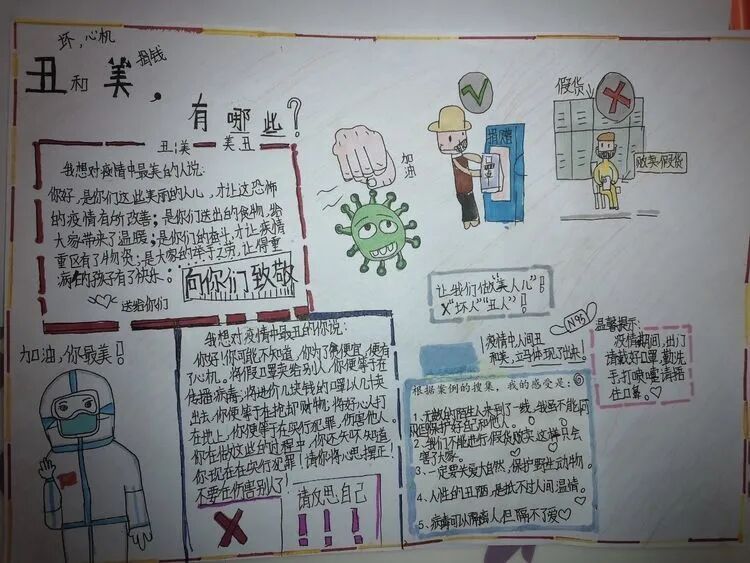 坏,心机
捐钱
丑和美,
有哪些?
丑 美 美 丑
我想对疫情中最美的人说:
你好,是你们这些美丽的人儿,才让这恐怖
的疫情有所改善;是你们送出的食物,给
大家带来了温暖;是你们的奋斗,才让疫情
重区有了物资;是大家的举手之劳,让得重
病的孩子有了快乐。
向你们致敬
送给你们
加油
捐赠
假货
贩卖假货
让我们做“美人儿”!
“坏人”“丑人”!
N95
疫情中人间丑
和美,立马体现了出来!
温馨提示:
疫情期间,出门
请戴好口罩,勤洗
手,打喷嚏请捂
住口鼻。
加油,你最美!
我想对疫情中最丑的你说:
你好!你可能不知道,你为了贪便宜,便有
了心机。将假口罩卖给别人,你便等于在
传播病毒;将地价几块钱的口罩以几十卖
出去,你便等于在抢劫财物;将好心人打
在地上,你便等于在实行犯罪!伤害他人。
你在做这些的过程中,你还失坏知道
你现在在实行犯罪!请你将心思摆正!
不要在伤害别人了!
请反思自己
!!!
根据案例的搜集,我的感受是:
1、无数的陌生人来到了一线,我虽不能,可
以但保护好自己和他人。
2、我们不能进行假货贩卖,这样只会
害了大家。
3、一定要关爱大自然,保护野生动物。
4、人性的丑陋,是抵不过人间温情。
5、病毒可以隔离人,但隔不了爱